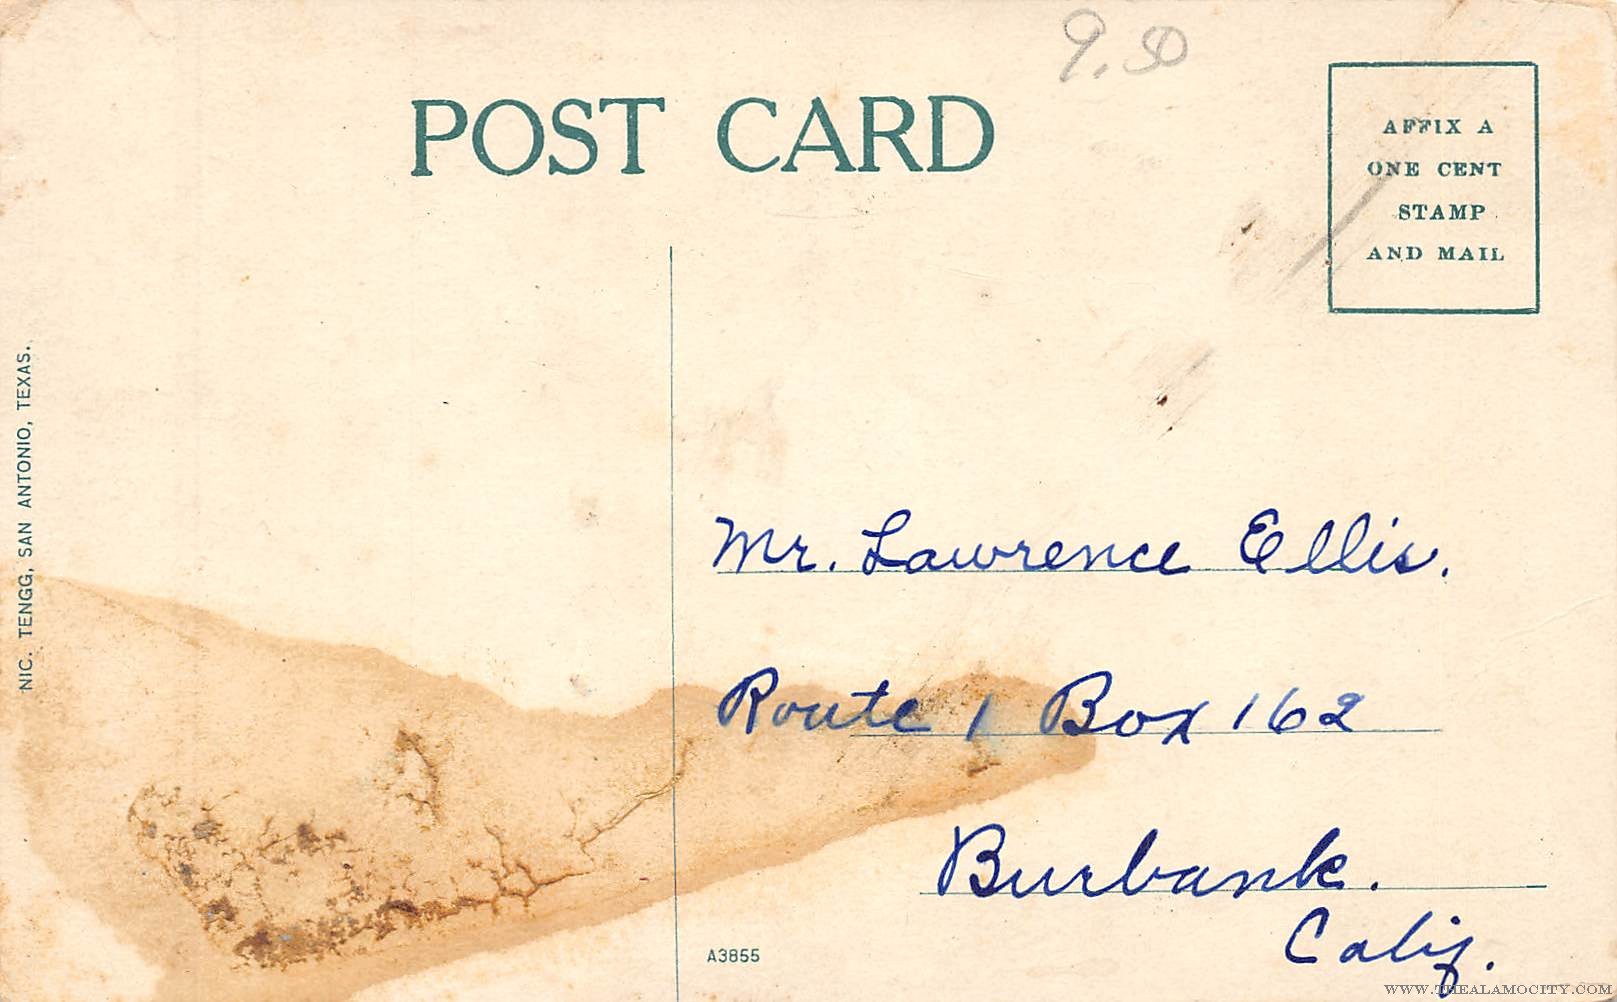 9.50
POST CARD
AFFIX A
ONE CENT
STAMP
AND MAIL
NIC. TENGG, SAN ANTONIO, TEXAS.
Mr. Lawrence Ellis.
Route 1 Box 162
Burbank.
Calif.
A3855
WWW.THEALAMOCITY.COM